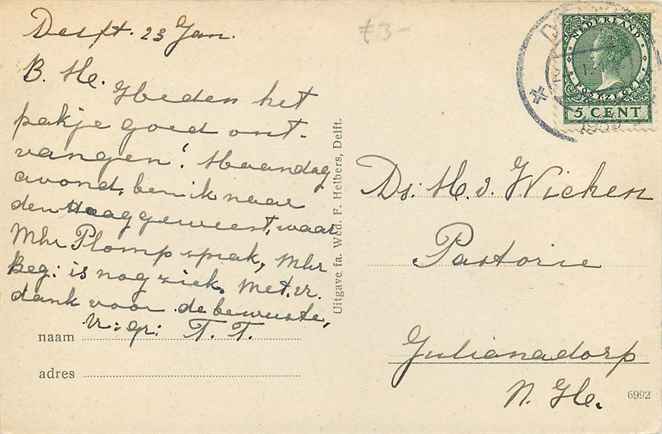 Delft. 23 Jan.
£3-
B. H. Heden het
pakje goed ont-
vangen! Maandag
avond, ben ik naar
den Haag geweest, waar
Mhr Plomp sprak, Mhr
Beg: is nog ziek. Met vr.
dank voor de bewuste,
Vr: gr: T. T.
naam
adres
Uitgave fa. Wed. F. Helbers, Delft.
NEDERLAND
5 CENT
Ds. H. v. Wicken
Pastorie
Julianadorp
N. H.
6992